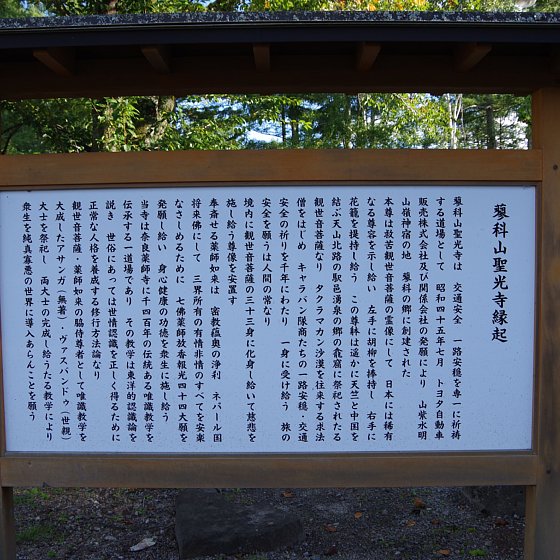 蓼科山聖光寺縁起
蓼科山聖光寺は　交通安全　一路安穏を専一に祈祷
する道場として　昭和四十五年七月　トヨタ自動車
販売株式会社及び関係会社の発願により　山紫水明
山嶺神宿の地　蓼科の郷に創建された
本尊は抜苦観世音菩薩の霊像にして　日本には稀有
なる尊容を示し給い　左手に胡柳を捧持し　右手に
花籠を提持し給う　この尊躰は遥かに天竺と中国を
結ぶ天山北路の駅邑湧泉の郷の龕窟に祭祀されたる
観世音菩薩なり　タクラマカン沙漠を往来する求法
僧をはじめ　キャラバン隊商たちの一路安穏・交通
安全の祈りを千年にわたり　一身に受け給う　旅の
安全を願うは人間の常なり
境内に観世音菩薩の三十三身に化身し給いて慈悲を
施し給う尊像を安置す
奉斎せる薬師如来は　密教蘊奥の浄利　ネパール国
将来佛にして　三界所有の有情非情のすべてを安楽
なさしめるために　七佛薬師放香報光四十四大願を
発願し給い　身心健康の功徳を衆生に施し給う
当寺は奈良薬師寺に千四百年の伝統ある唯識教学を
伝承する一道場であり　その教学は東洋的認識論を
説き　世俗にあっては世情認識を正しく得るために
正常な人格を養成する修行方法論なり
観世音菩薩、薬師如来の脇待尊者として唯識教学を
大成したアサンガ（無著）・ヴァスバンドゥ（世親）
大士を祭祀し　両大士の完成し給うたる教学により
衆生を純真寡悪の世界に導入あらんことを願う